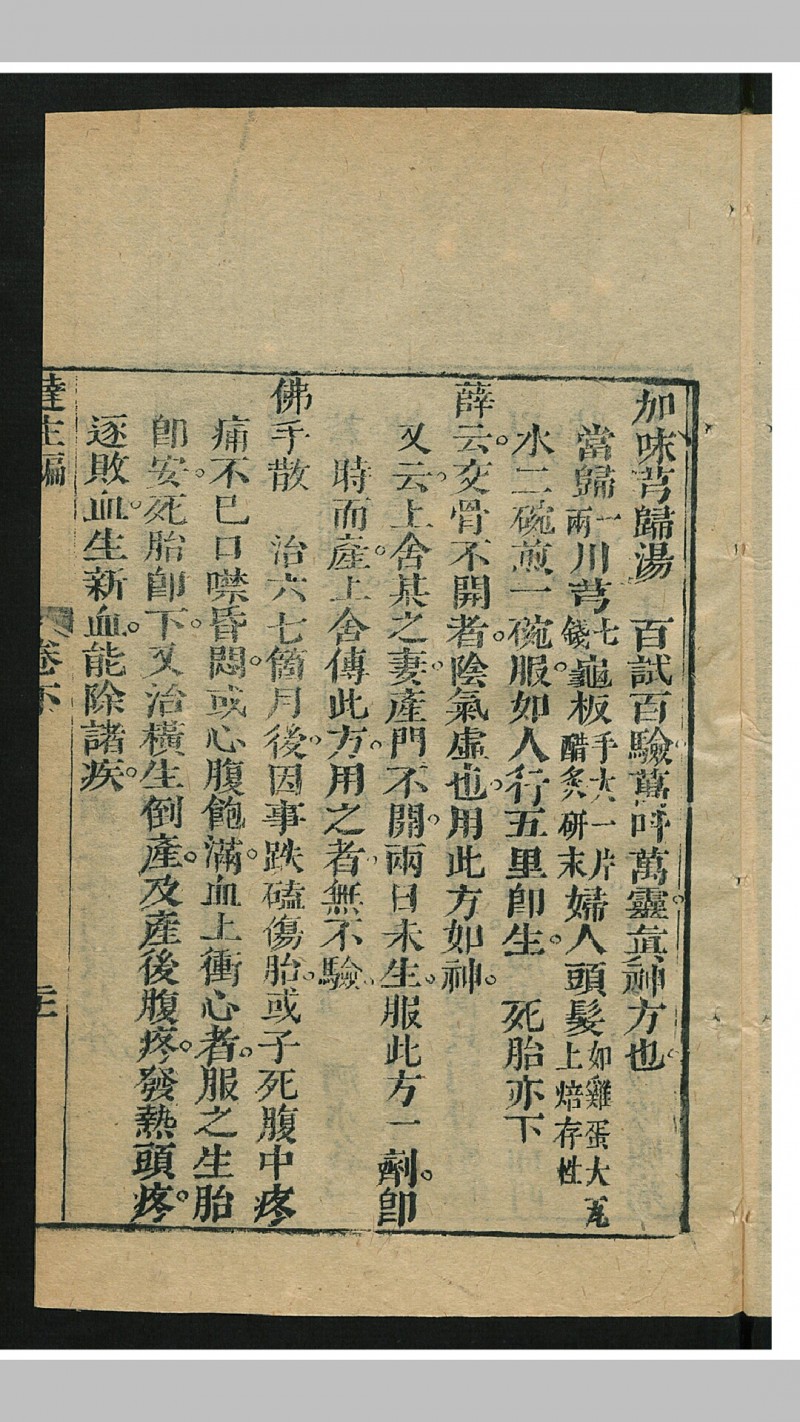 加味芎歸湯　百試百驗萬呼萬靈眞神方也。
當歸一兩川芎七錢。龜板手大一片醋炙研末婦人頭髮如雞蛋大瓦上焙存性
水二碗煎一碗服如人行五里卽生。死胎亦下
薛云。交骨不開者。陰氣虛也。用此方如神。
又云。上舍某之妻。產門不開。兩日未生。服此方一劑。卽
時而產。上舍傳此方。用之者無不驗
佛手散　治六七箇月後。因事跌磕傷胎。或子死腹中疼
痛不已口噤昏悶。或心腹飽滿。血上衝心者。服之生胎
卽安。死胎卽下。又治橫生倒產。及產後腹疼。發熱頭疼。
逐敗血。生新血。能除諸疾。
達生編　卷下